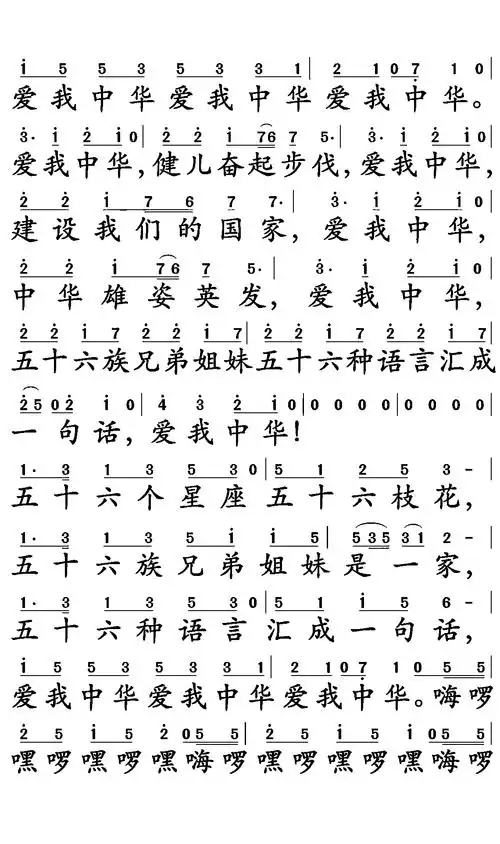 i 5 5 3 5 5 3 3 1 | 2 1 0 7 1 0
爱我中华爱我中华爱我中华。
3· i 2 i 0 | 2 2 i 7 6 7 5· | 3· i 2 i 0 |
爱我中华,健儿奋起步伐,爱我中华,
2 2 i 7 6 7 7· | 3· i 2 i 0 |
建设我们的国家,爱我中华,
2 2 i 7 6 7 5· | 3· i 2 i 0 |
中华雄姿英发,爱我中华,
2 2 i 7 2 2 i 7 | 2 2 i 7 2 2 i 7 |
五十六族兄弟姐妹五十六种语言汇成
2 5 0 2 i 0 | 4 3 2 i 0 | 0 0 0 0 | 0 0 0 0 |
一句话,爱我中华!
1· 3 1 3 5 3 0 | 5 1 2 5 3 - |
五十六个星座五十六枝花,
1· 3 1 3 5 i i 5 | 5 3 5 3 1 2 - |
五十六族兄弟姐妹是一家,
1· 3 1 3 5 3 0 | 5 1 i 5 6 - |
五十六种语言汇成一句话,
i 5 5 3 5 5 3 3 1 | 2 1 0 7 1 0 5 5 |
爱我中华爱我中华爱我中华。嗨啰
2 5 i 5 2 0 5 5 | 2 5 i 5 i 0 5 5 |
嘿啰嘿啰嘿嗨啰嘿啰嘿啰嘿嗨啰